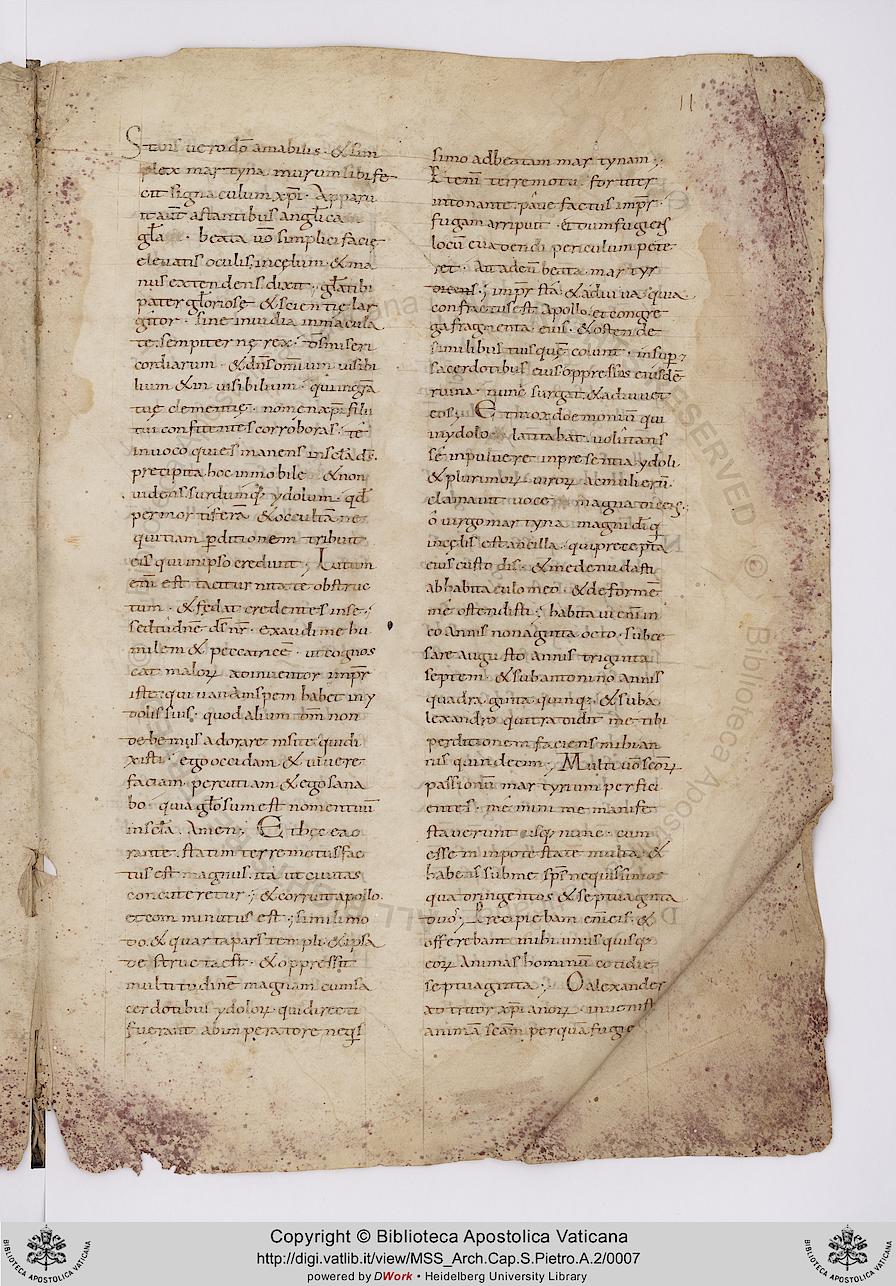 11
Stans vero dō amabilis · & sim
plex martyna murum sibi fe
cit signaculum xp̄i · Apparu
it aūt astantibus anglica
glā · beata v̄o simplici facię
elevatis oculis, in cęlum · & ma
nus extendens dixit ; glā tibi
pater glōriosę & scientię lar
gitor · sine invidia inmacula
te · sempiternę rex ; d̄s miseri
cordiarum · & dn̄s omnium visibi
lium & invisibilium · qui in grā
tuę clementię · nomen xp̄i filii
tui confitentes corroboras ; te
invoco qui es manens in scl̄a d̄s ·
precipita hoc inmobile · & non
videns surdumq; ydolum · qd̄
per mortiferā · & occultā ne
quitiam p̄ditionem tribuit
eis qui in ipso credunt ; Lutum
eīn est taciturnitate obstruc
tum · & fędat credentes in se ;
sed tu dn̄e d̄s nr̄ · exaudi me hu
milem & peccatricē · ut cognos
cat malor̄ adinventor imp̄r
iste · qui vanā spem habet in y
dolis suis · quod alium dm̄ non
debemus adorare nisi te · qui di
xisti ; ego occidam · & vivere
faciam · percutiam & ego sana
bo · quia glōsum est nomen tuū
in scl̄a · Amen ; Et hęc ea o
rante · statim terremotus fac
tus est magnus · ita ut civitas
concuteretur ; & corruit apollo ·
et comminutus est ; simili mo
do · & quarta pars templi · & ipsa
destructa est · & oppressit
multitudinē magnam cum sa
cerdotibus ydolor̄ · qui directi
fuerant ab imperatore neqis
simo ad beatam martynam ;
Item terremotu · fortiter
intonante · pave factus imp̄r ·
fugam arripuit · et dum fugiens
locū evadendi periculum pete
ret · Ait ad eū beata martyr
imp̄r sta · & adiuva quia
confractus est Apollo · et congre
ga fragmenta eius · & ostende
similibus tuis quę colunt · insup̄ ;
sacerdotibus eius oppressis eiusdē
ruina · nunc surgat · & adiuvet
eos ; Et mox doemoniū qui
in ydolo · latitabat · volutans
se in pulvere in presentia ydoli ·
& plurimor̄ viror̄ ac mulierū ·
clamavit voce magna dicens ;
o virgo martyna magni dī q̄
in cęlis est ancilla · qui precepta
eius custodis · & me denudasti
ab habitaculo meo · & deformē
me ostendisti ; habitavi enī in
eo annis nonaginta octo · sub ce
sare augusto annis triginta
septem · & sub antonino annis
quadraginta quinq; · & sub a
lexandro qui tradidit me tibi
perditionem faciens mihi an
nis quindecim ; Multi v̄o scōr̄
passionū martyrium perfici
entes · meminime manife
staverunt usq; nunc · cum
essem in potestate multa · &
habens sub me sp̄s nequissimos
quadringentos & septuaginta
duos ; Precipiebam enī eis · &
offerebant mihi unusquisq;
eor̄ animas hominū cotidie
septuaginta ; O alexander
adiutor xp̄i anor̄ · invenisti
animā scām per quā fugie
Copyright © Biblioteca Apostolica Vaticana
http://digi.vatlib.it/view/MSS_Arch.Cap.S.Pietro.A.2/0007
powered by DWork • Heidelberg University Library